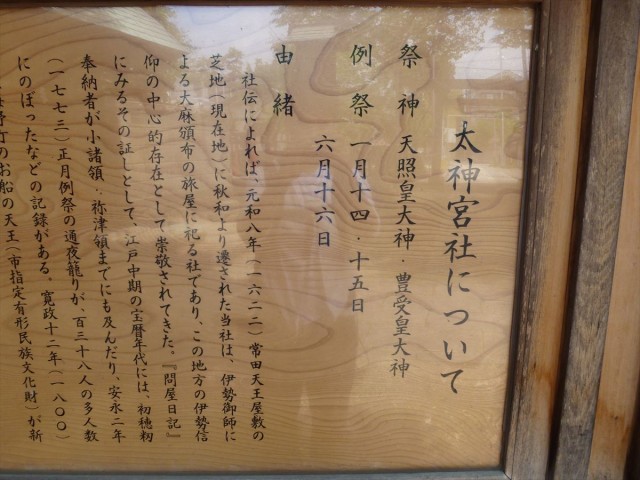 太神宮社について
祭神 天照皇大神・豊受皇大神
例祭 一月十四・十五日
六月十六日
由緒
社伝によれば、元和八年（一六二二）常田天王屋敷の
芝地（現在地）に秋和より遷された当社は、伊勢御師に
よる大麻頒布の旅屋に祀る社であり、この地方の伊勢信
仰の中心的存在として崇敬されてきた。『問屋日記』
にみるその証しとして、江戸中期の宝暦年代には、初穂籾
奉納者が小諸領・祢津領までにも及んだり、安永二年
（一七七三）正月例祭の通夜籠りが、百三十八人の多人数
にのぼったなどの記録がある。寛政十二年（一八〇〇）
町のお船の天王（市指定有形民族文化財）が新